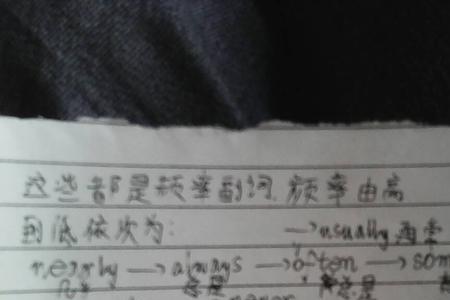 这些都是频率副词. 频率由高
到低依次为: →usually 通常
nearly → always → often → som
几乎 总是